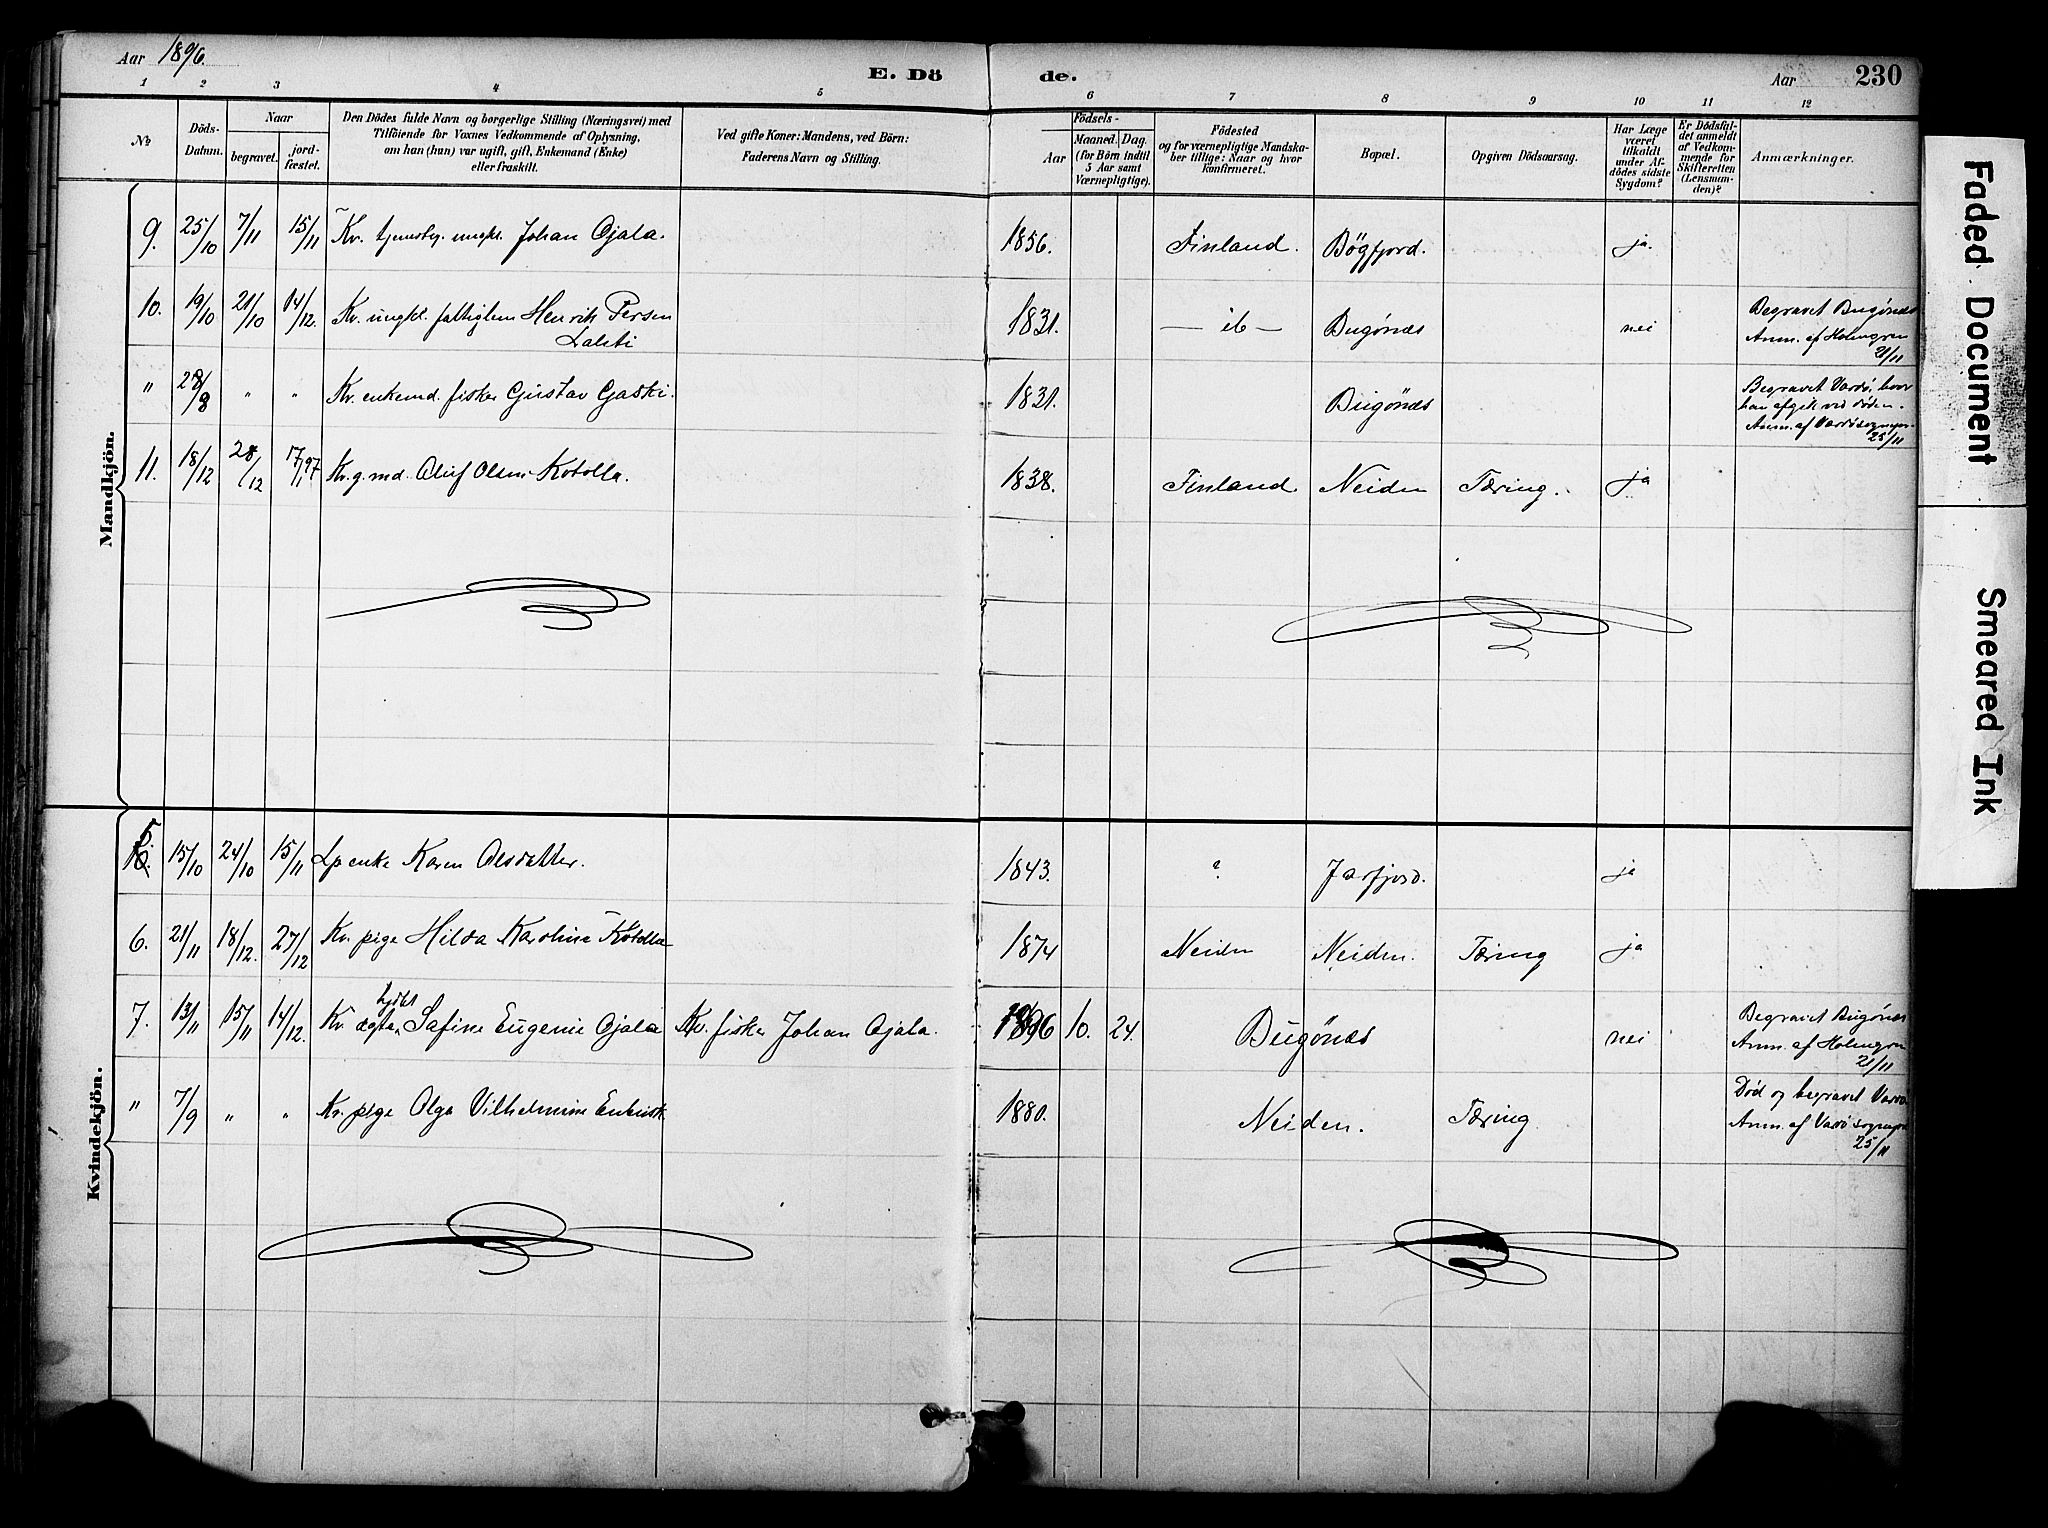 Aar 1896.
E. Dö de.
Aar
230
1 2 3 4 5 6 7 8 9 10 11 12
No
Döds-Datum.
Naar
begravet.
jord-fæstet.
Den Dödes fulde Navn og borgerlige Stilling (Næringsvei) med
Tilföiende for Voxnes Vedkommende af Oplysning,
om han (hun) var ugift, gift, Enkemand (Enke)
eller fraskilt.
Ved gifte Koner: Mandens, ved Börn:
Faderens Navn og Stilling.
Födsels-
Aar
Maaned. Dag.
(for Börn indtil
5 Aar samt
Værnepligtige).
Födested
og for værnepligtige Mandska-
ber tillige: Naar og hvor
konfirmeret.
Bopæl.
Opgiven Dödsaarsag.
Har Læge
været
tilkaldt
under Af-
dödes sidste
Sygdom?
Er Dödsfal-
det anmeldt
af Vedkom-
mende for
Skifteretten
(Lensman-
den)?
Anmærkninger.
Mandkjön.
9. 25/10 7/11 15/11 Kv. tjenesteg. ungk. Johan Ojala. 1856. Finland. Bögfjord. ja.
10. 19/10 21/10 14/12. Kv. ungkl. fattiglem Henrik Persen 1831. — ib — Bugönæs nei Begravet Bugönæs
Lalsti Anm. af Holmgren
21/11
" 28/8 " " Kv. enkemd. fisker Gustav Gaski. 1831. Bugönæs Begravet Vardö, hvor
han afgik ved døden.
Anm. af Vardö sognepr.
25/11
11. 18/12 28/12 17/1 97 Kv. g. md. Oluf Olsen Kotolla. 1838. Finland. Neiden Tæring. ja
Kvindekjön.
5. 15/10 24/10 15/11 Lp enke Karen Olsdatter. 1843. ? Jarfjord. ja
6. 21/11 18/12. 27/12 Kv. pige Hilda Karoline Kotolla 1874 Neiden Neiden. Tæring ja
7. 13/11 15/11 14/12. Kv. ægtef. Safine Eugenie Ojala Kv. fisker Johan Ojala. 1896 10. 24. Bugönæs nei Begravet Bugönæs
Anm. af Holmgren
21/11
" 7/9 " " Kv. pige Olga Vilhelmine 1880. Neiden. Tæring. Død og begravet Vardö
Anm. af Vardö sognepr
25/11
Faded Document
Smeared Ink